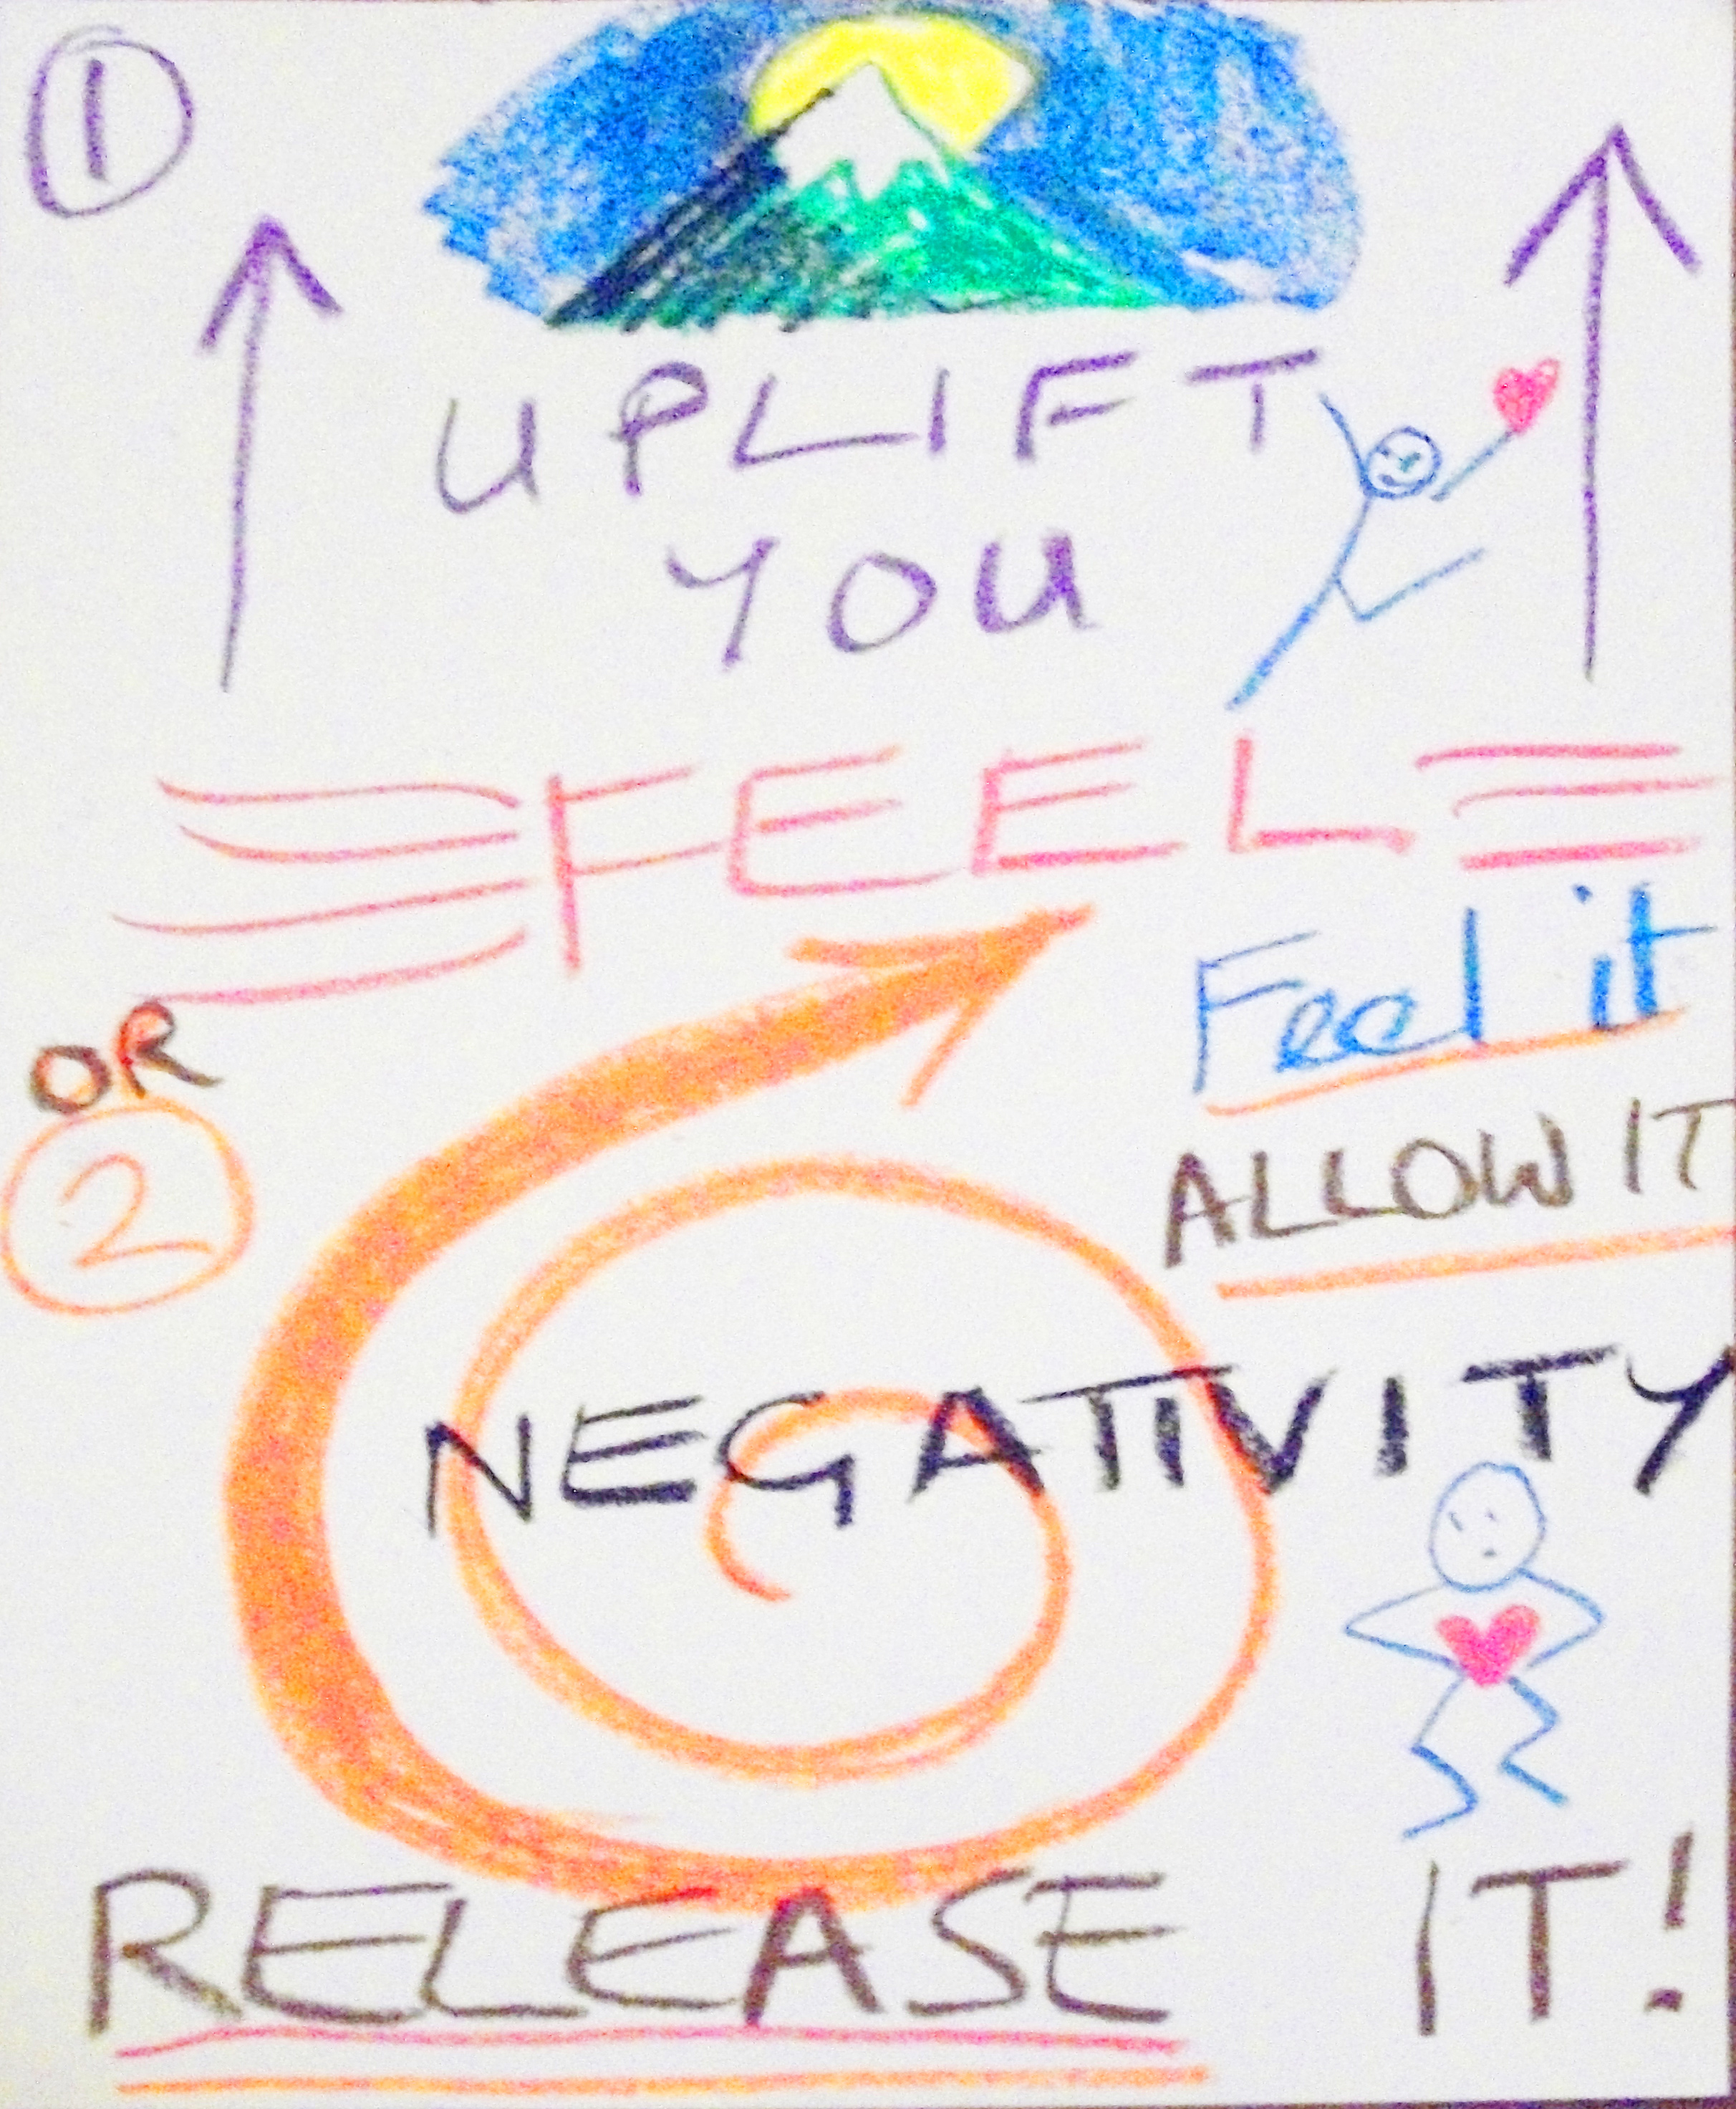 1
UPLIFT
YOU
FEEL
Feel it
OR
2
ALLOW IT
NEGATIVITY
RELEASE IT!